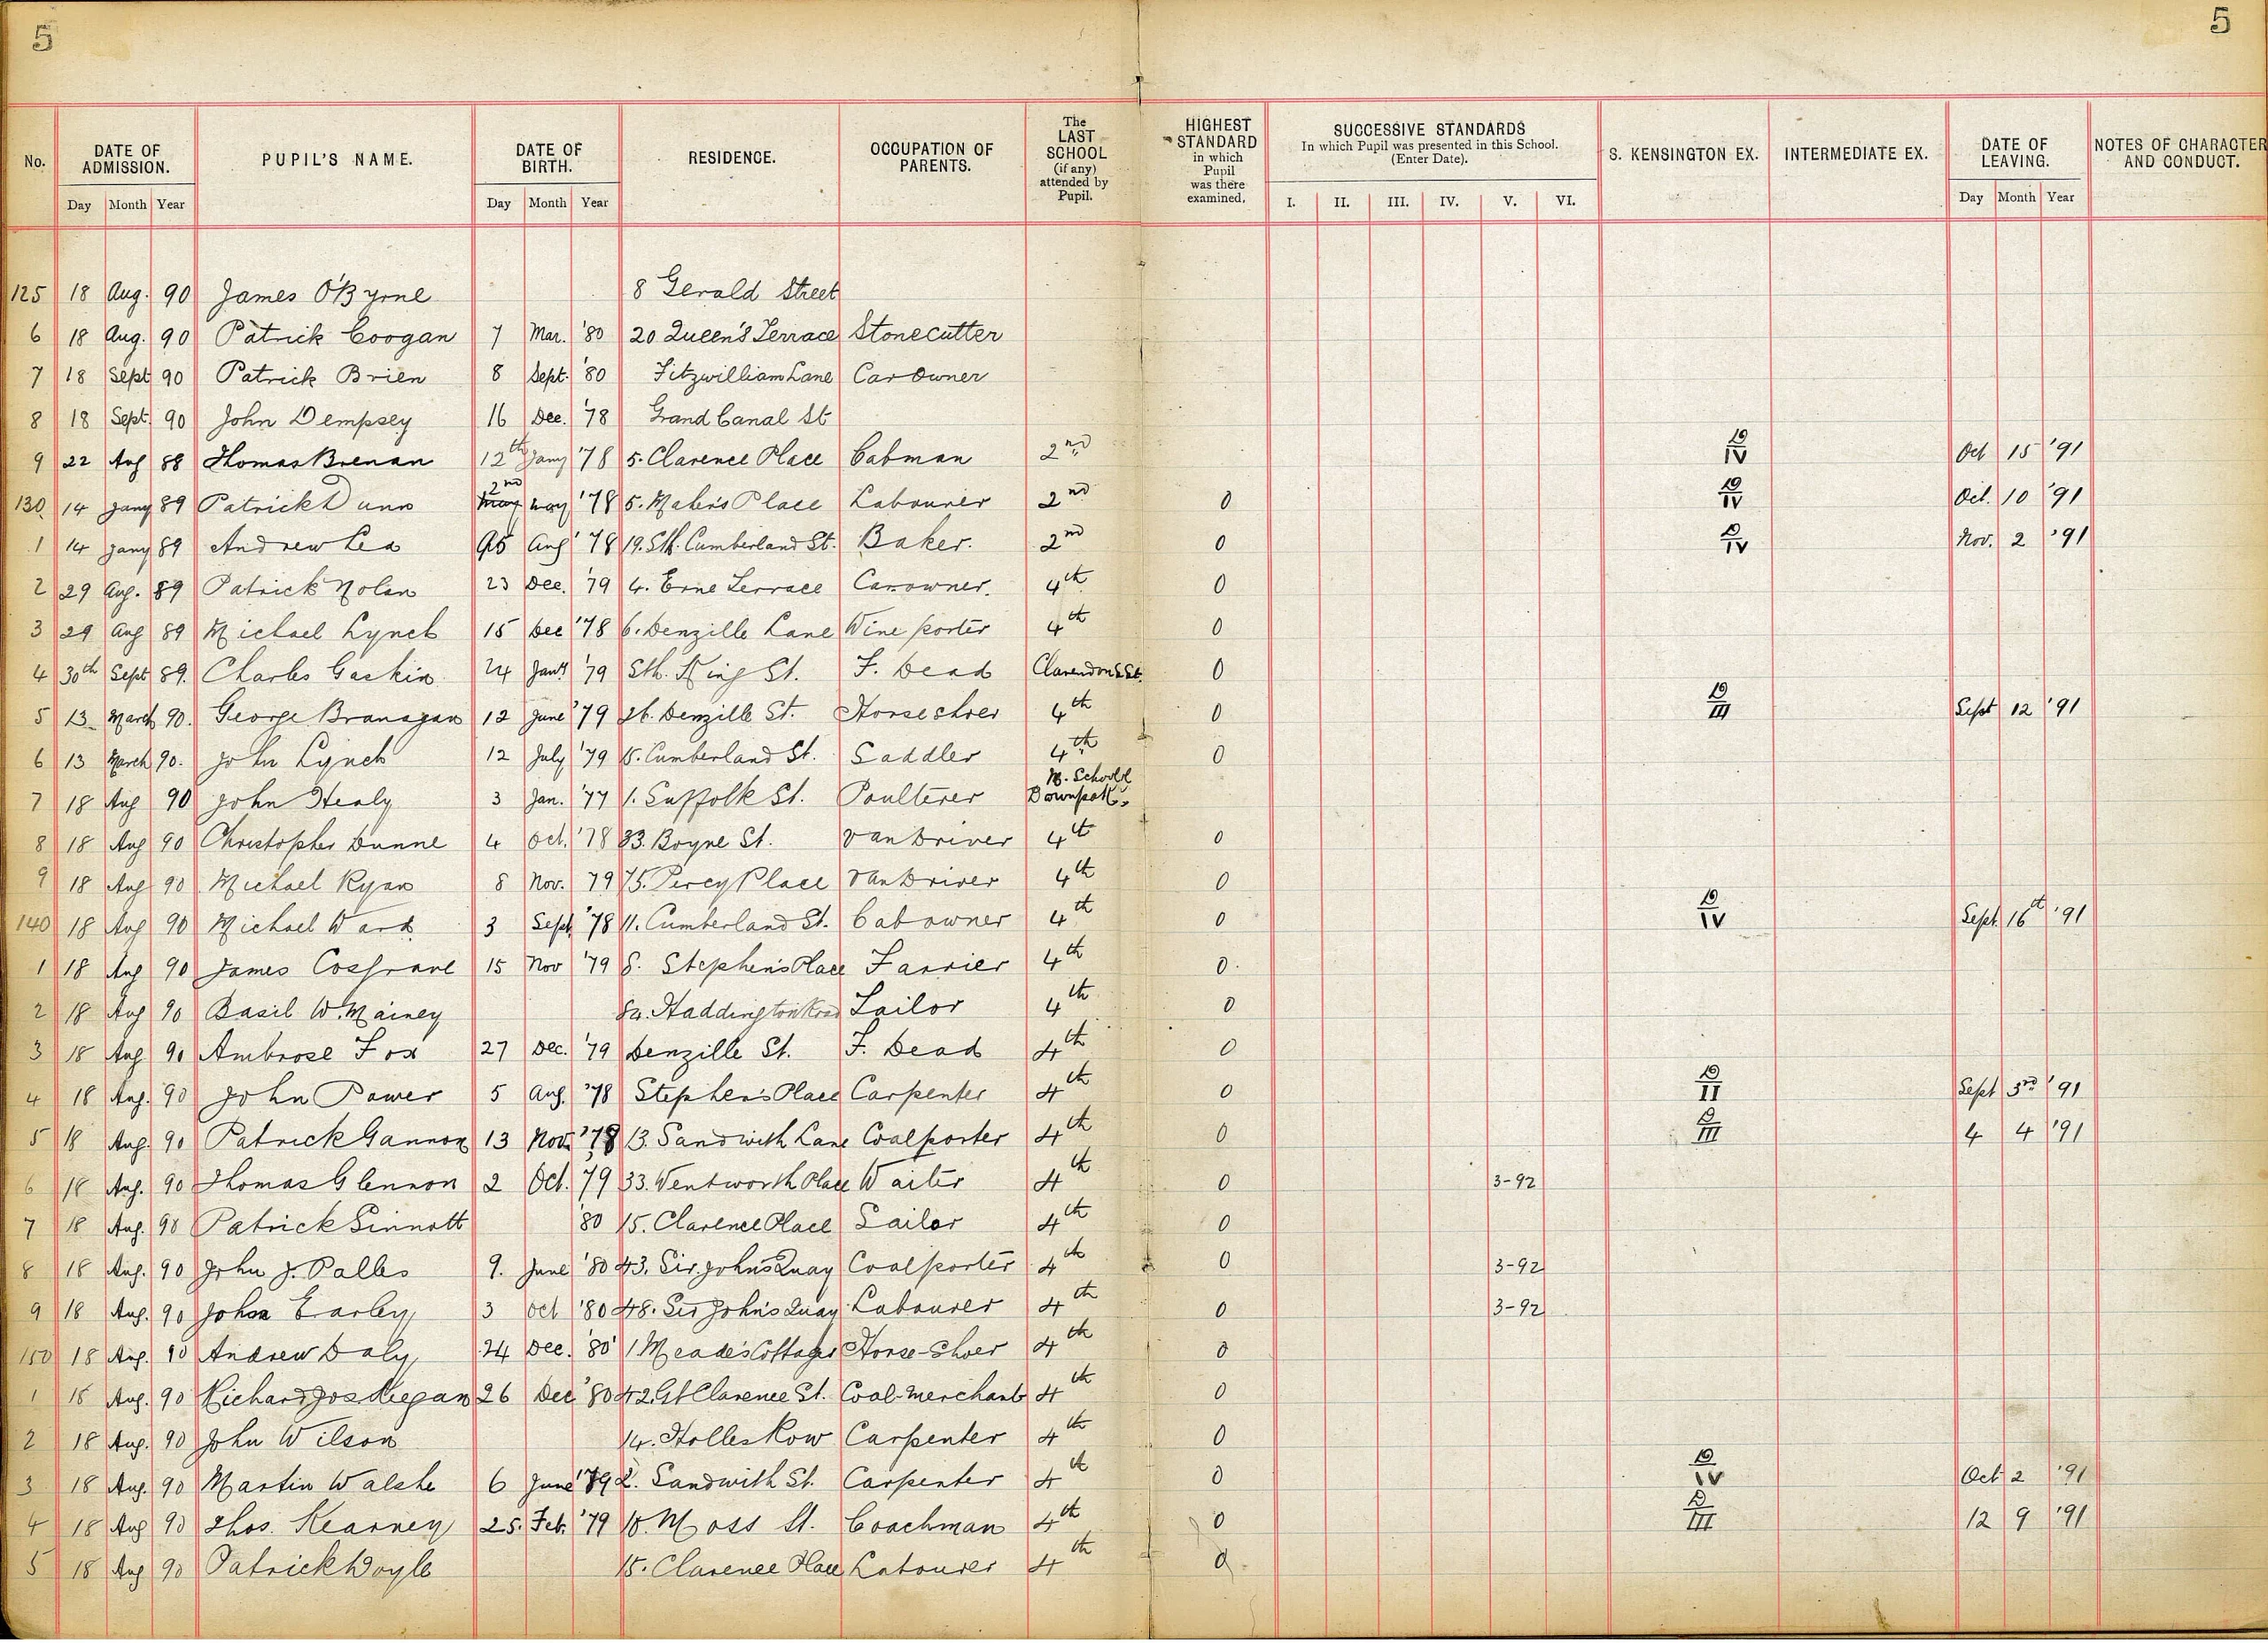 5 5
No. DATE OF ADMISSION. PUPIL'S NAME. DATE OF BIRTH. RESIDENCE. OCCUPATION OF PARENTS. The LAST SCHOOL (if any) attended by Pupil. HIGHEST STANDARD in which Pupil was there examined. SUCCESSIVE STANDARDS In which Pupil was presented in this School. (Enter Date). S. KENSINGTON EX. INTERMEDIATE EX. DATE OF LEAVING. NOTES OF CHARACTER AND CONDUCT.
Day Month Year Day Month Year I. II. III. IV. V. VI. Day Month Year
125 18 Aug. 90 James O'Byrne 8 Gerald Street
6 18 Aug. 90 Patrick Coogan 7 Mar. '80 20 Queen's Terrace Stonecutter
7 18 Sept 90 Patrick Brien 8 Sept. '80 Fitzwilliam Lane Car Owner
8 18 Sept. 90 John Dempsey 16 Dec. '78 Grand Canal St
9 22 Aug 88 Thomas Brenan 12th Jany '78 5. Clarence Place Cabman 2nd D/IV Oct 15 '91
130 14 Jany 89 Patrick Dunn 2nd May '78 5. Maher's Place Labourer 2nd 0 D/IV Oct. 10 '91
1 14 Jany 89 Andrew Lea Aug '78 19. Sth. Cumberland St. Baker. 2nd 0 D/IV Nov. 2 '91
2 29 Aug. 89 Patrick Nolan 23 Dec. '79 4. Erne Terrace Car owner. 4th 0
3 29 Aug 89 Michael Lynch 15 Dec '78 6. Denzille Lane Wine porter 4th 0
4 30th Sept 89. Charles Gaskin 24 Jany '79 Sth. King St. F. Dead Clarendon St. 0
5 13 March 90. George Branagan 12 June '79 26. Denzille St. Horseshoer 4th 0 D/III Sept 12 '91
6 13 March 90. John Lynch 12 July '79 15. Cumberland St. Saddler 4th 0
7 18 Aug 90 John Healy 3 Jan. '77 1. Suffolk St. Poulterer M. School Downpat.
8 18 Aug 90 Christopher Dunne 4 Oct. '78 33. Boyne St. Van Driver 4th 0
9 18 Aug 90 Michael Ryan 8 Nov. 79 75. Percy Place Van Driver 4th 0
140 18 Aug 90 Michael Ward 3 Sept '78 11. Cumberland St. Cab owner 4th 0 D/IV Sept. 16th '91
1 18 Aug 90 James Cosgrave 15 Nov '79 8. Stephen's Place Farrier 4th 0.
2 18 Aug 90 Basil W. Mainey 84. Haddington Road Tailor 4th 0
3 18 Aug 90 Ambrose Fox 27 Dec. '79 Denzille St. F. Dead 4th 0
4 18 Aug. 90 John Power 5 Aug. '78 Stephen's Place Carpenter 4th 0 D/II Sept 3rd '91
5 18 Aug. 90 Patrick Gannon 13 Nov. '78 13. Sandwith Lane Coalporter 4th 0 D/III 4 4 '91
6 18 Aug. 90 Thomas Glennon 2 Oct. '79 33. Wentworth Place Waiter 4th 0 3-92
7 18 Aug. 90 Patrick Sinnott '80 15. Clarence Place Sailor 4th 0
8 18 Aug. 90 John J. Palles 9. June '80 43. Sir John's Quay Coalporter 4th 0 3-92
9 18 Aug. 90 John Earley 3 Oct '80 48. Sir John's Quay Labourer 4th 0 3-92
150 18 Aug. 90 Andrew Daly 24 Dec. '80 1 Meade's Cottages Horse-Shoer 4th 0
1 18 Aug. 90 Richard Jos. Keegan 26 Dec '80 42. Gt Clarence St. Coal-Merchant 4th 0
2 18 Aug. 90 John Wilson 14. Holles Row Carpenter 4th 0
3 18 Aug. 90 Martin Walshe 6 June '79 2. Sandwith St. Carpenter 4th 0 D/IV Oct 2 '91
4 18 Aug 90 Thos. Kearney 25. Feb. '79 10. Moss St. Coachman 4th 0 D/III 12 9 '91
5 18 Aug 90 Patrick Doyle 15. Clarence Place Labourer 4th 0